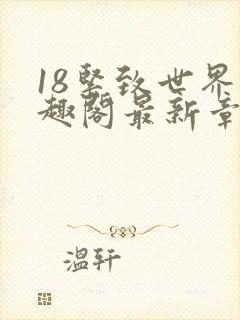 18坚致世界
趣阁最新章
温轩